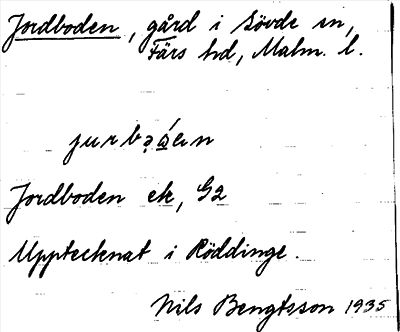 Jordboden, gård i Sövde sn,
Färs hd, Malm. l.
Jordboden ek, G2
Upptecknat i Röddinge.
Nils Bengtsson 1935